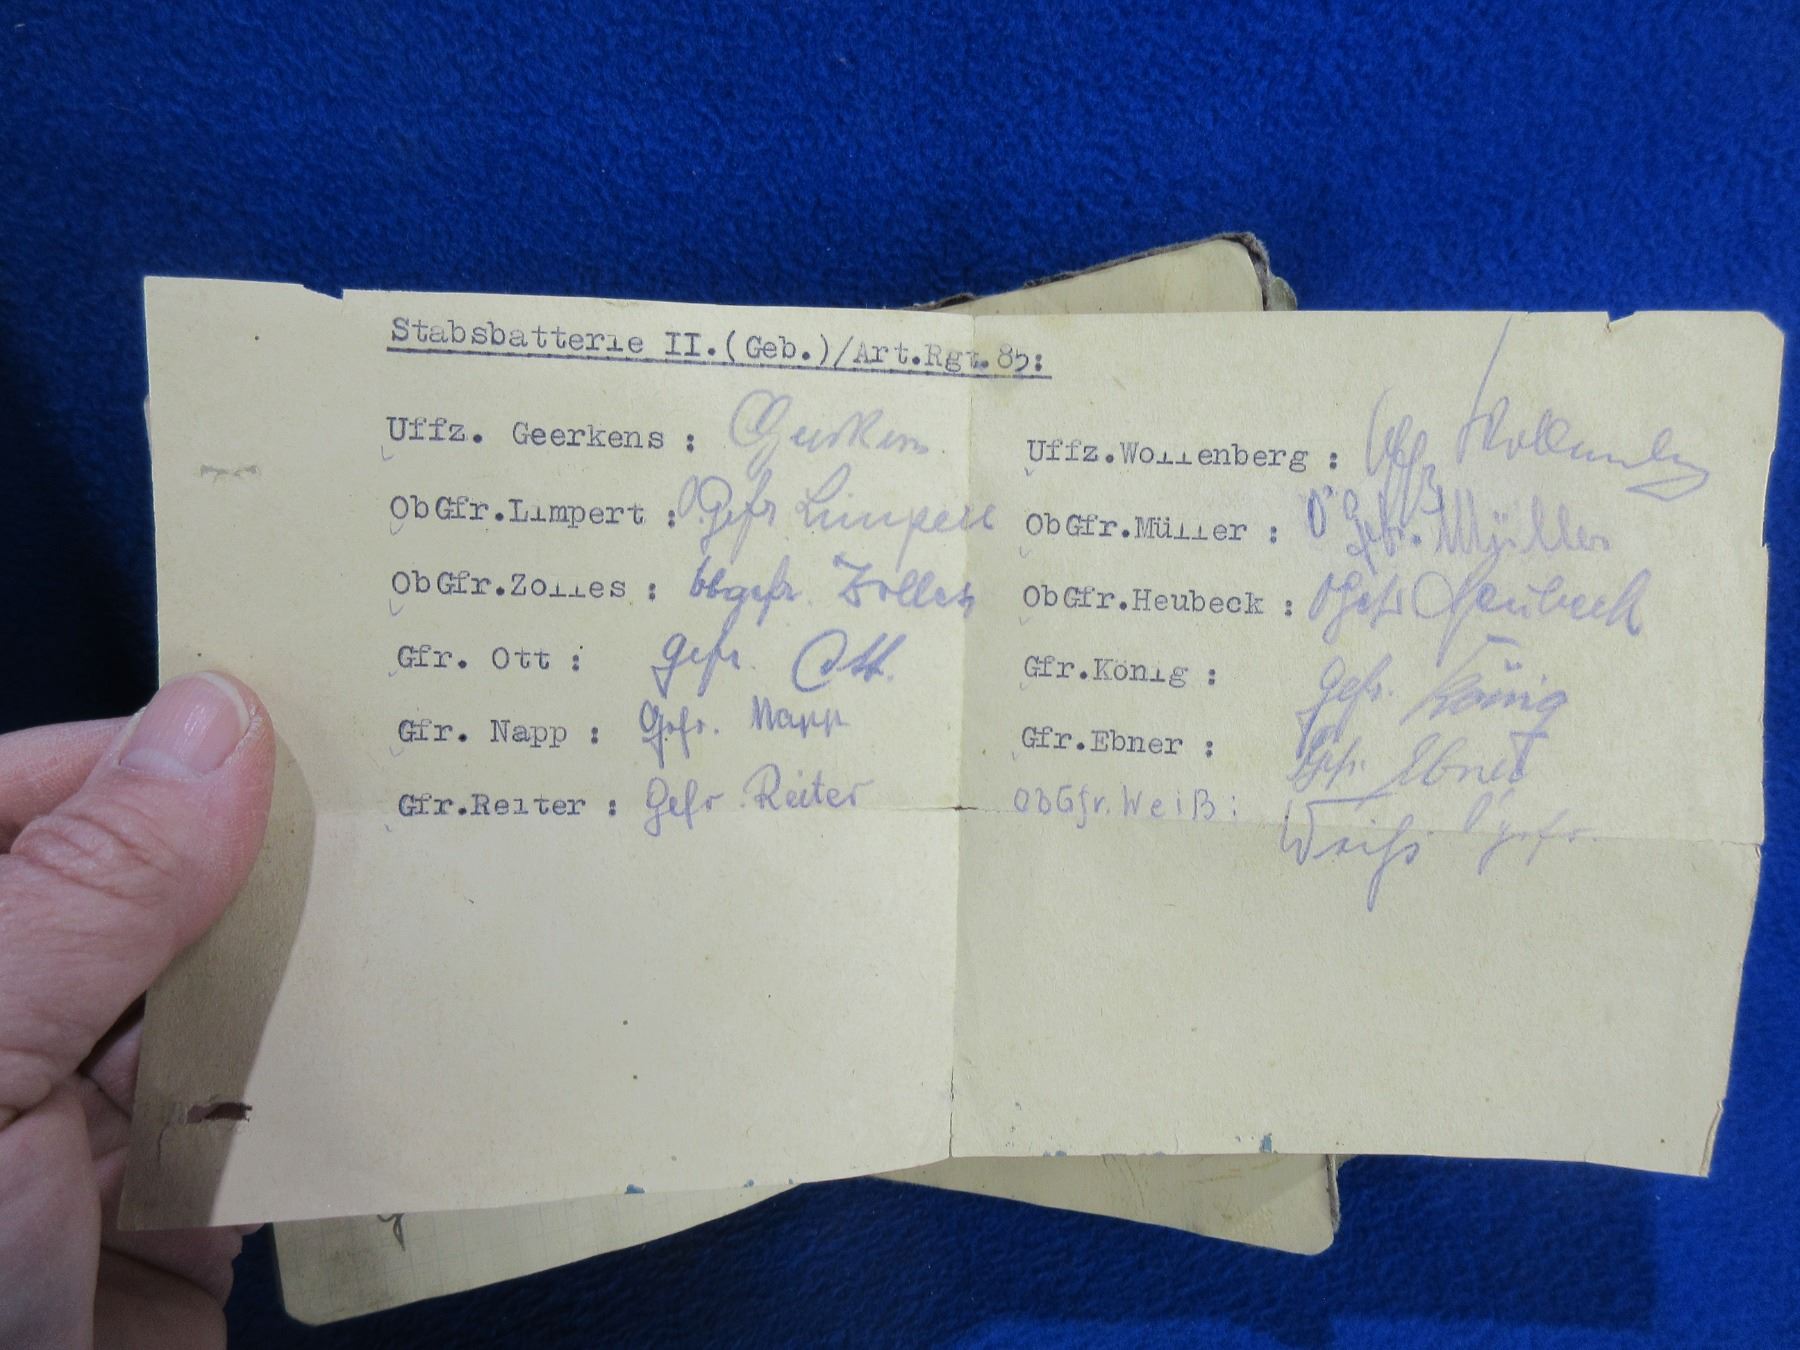 Stabsbatterie II.(Geb.)/Art.Rgt.85:
Uffz. Geerkens : Geerkens
ObGfr.Limpert : O.Gefr Limpert
ObGfr.Zolles : Obgefr. Zolles
Gfr. Ott : Gefr. Ott.
Gfr. Napp : Gefr. Napp
Gfr.Reiter : Gefr. Reiter
Uffz.Wollenberg : Uffz Wollenberg
ObGfr.Müller : O'Gefr. Müller
ObGfr.Heubeck : OGefr Heubeck
Gfr.König : Gefr. König
Gfr.Ebner : Gefr. Ebner
ObGfr.Weiß: Weiß O'gefr.